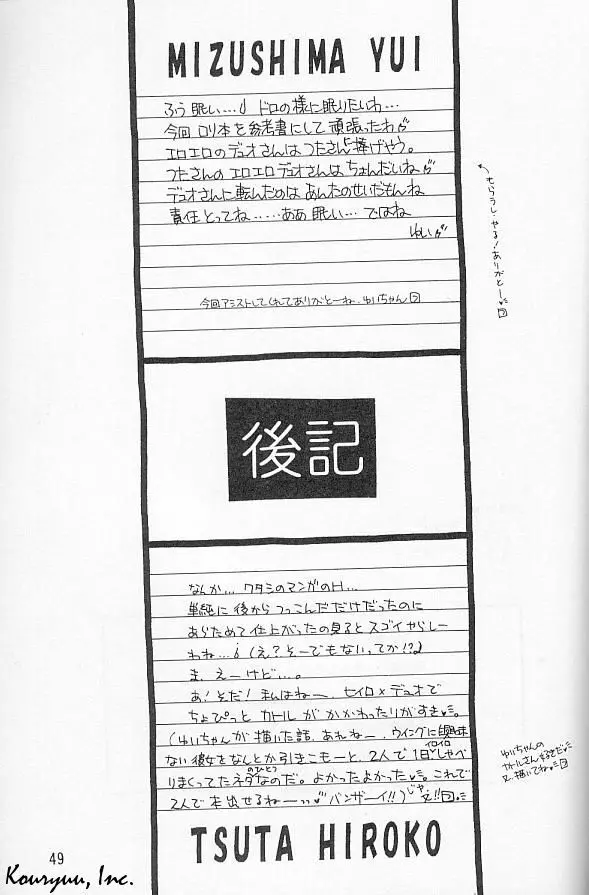 MIZUSHIMA YUI
ふう眠い…。ドロの様に眠りたいわ…
今回ロリ本を参考書にして頑張ったわ
エロエロのデュオさんはつたさんに捧げやう。
つたさんのエロエロデュオさんはちょんだいね
デュオさんに転んだのはあんたのせいだもんね
責任とってね……ああ眠い…ではね
ゆい
もらうしやる!ありがとー
今回アシストしてくれてありがとーね、ゆいちゃん
後記
なんか…ワタシのマンガのH…
単純に後からつっこんだだけだったのに
あらためて仕上がったの見るとスゴイやらしー
わね…(え?そーでもないってか!?)
ま、えーけど…。
あ!そだ!私はねー、セイロ×デュオで
ちょぴっとカトルがかかわったりがすき。
(ゆいちゃんが描いた話、あれねー、ウイングに興味
ない彼女をなんとか引きこもーと、2人で1日イロイロしゃべ
りまくってたネタなのだ。よかったよかった。これで
のひとつ
2人で本出せるねーっっ バンザーイ!!)じゃ、又!!
ゆいちゃんの
カトルさんすきだ
又描いてね
TSUTA HIROKO
49
Kouryuu, Inc.